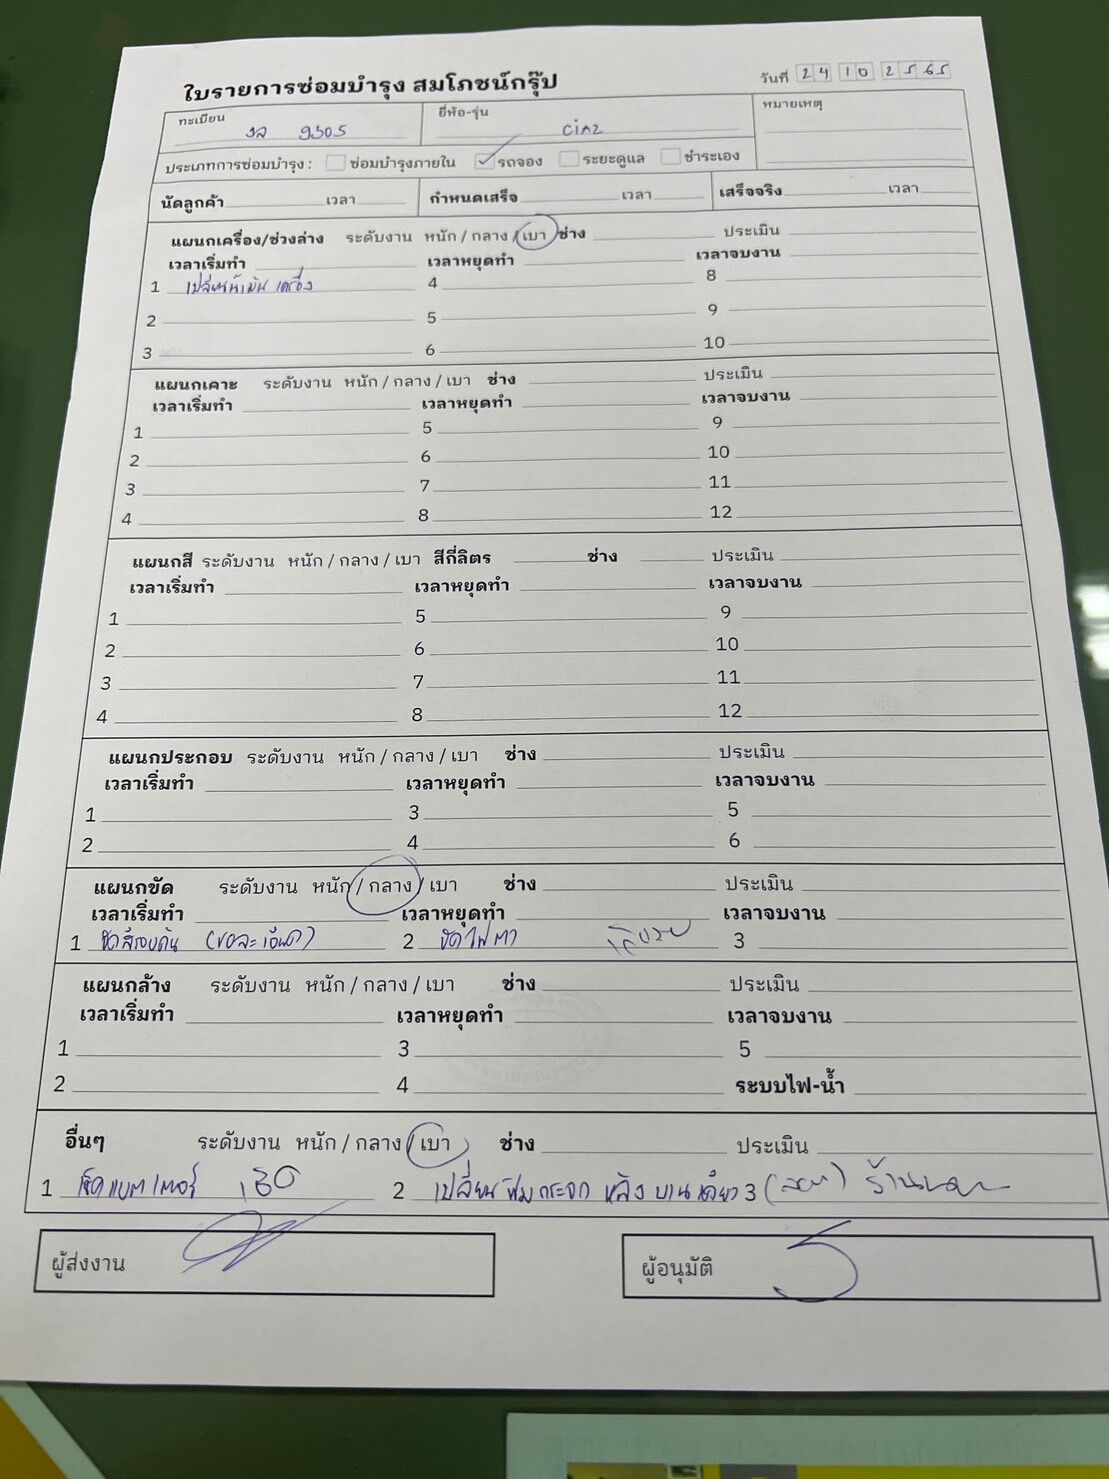 ใบรายการซ่อมบำรุง สมโภชน์กรุ๊ป
วันที่ 24 10 2565
ทะเบียน 9305 ยี่ห้อ-รุ่น ciaz หมายเหตุ
ประเภทการซ่อมบำรุง : ซ่อมบำรุงภายใน รถจอง ระยะดูแล ชำระเอง
นัดลูกค้า เวลา กำหนดเสร็จ เวลา เสร็จจริง เวลา
แผนกเครื่อง/ช่วงล่าง ระดับงาน หนัก / กลาง / เบา ช่าง ประเมิน
เวลาเริ่มทำ เวลาหยุดทำ เวลาจบงาน
1 เปลี่ยนน้ำมันเครื่อง 4 8
2 5 9
3 6 10
แผนกเคาะ ระดับงาน หนัก / กลาง / เบา ช่าง ประเมิน
เวลาเริ่มทำ เวลาหยุดทำ เวลาจบงาน
1 5 9
2 6 10
3 7 11
4 8 12
แผนกสี ระดับงาน หนัก / กลาง / เบา สีกี่ลิตร ช่าง ประเมิน
เวลาเริ่มทำ เวลาหยุดทำ เวลาจบงาน
1 5 9
2 6 10
3 7 11
4 8 12
แผนกประกอบ ระดับงาน หนัก / กลาง / เบา ช่าง ประเมิน
เวลาเริ่มทำ เวลาหยุดทำ เวลาจบงาน
1 3 5
2 4 6
แผนกขัด ระดับงาน หนัก / กลาง / เบา ช่าง ประเมิน
เวลาเริ่มทำ เวลาหยุดทำ เวลาจบงาน
1 ขัดสีรอบคัน (ขอละเอียด) 2 ขัดไฟตา 3
แผนกล้าง ระดับงาน หนัก / กลาง / เบา ช่าง ประเมิน
เวลาเริ่มทำ เวลาหยุดทำ เวลาจบงาน
1 3 5
2 4 ระบบไฟ-น้ำ
อื่นๆ ระดับงาน หนัก / กลาง / เบา ช่าง ประเมิน
1 เช็คแบตเตอรี่ 2 เปลี่ยนฟิล์มกระจก หลัง บานเดียว 3
ผู้ส่งงาน ผู้อนุมัติ